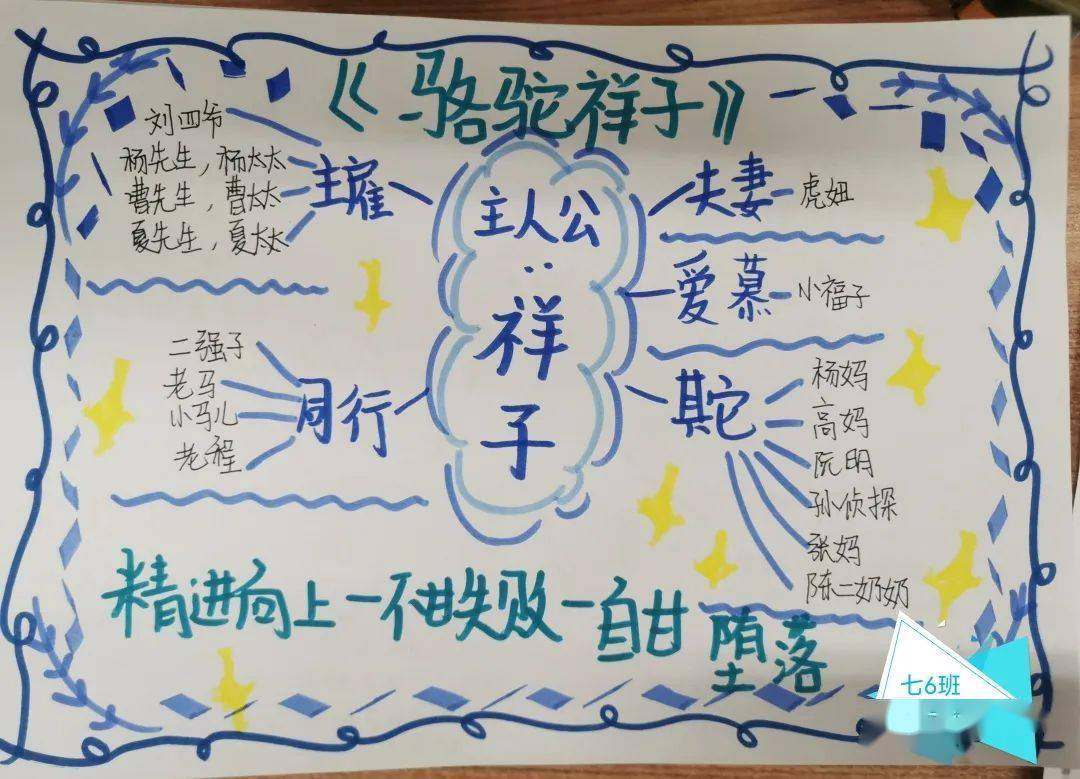 《骆驼祥子》
刘四爷
杨先生，杨太太
曹先生，曹太太
夏先生，夏太太
主雇
二强子
老马
小马儿
老程
同行
主人公
：
祥
子
夫妻
虎妞
爱慕
小福子
其它
杨妈
高妈
阮明
孙侦探
张妈
陈二奶奶
精进向上一不甘失败一自甘堕落
七6班